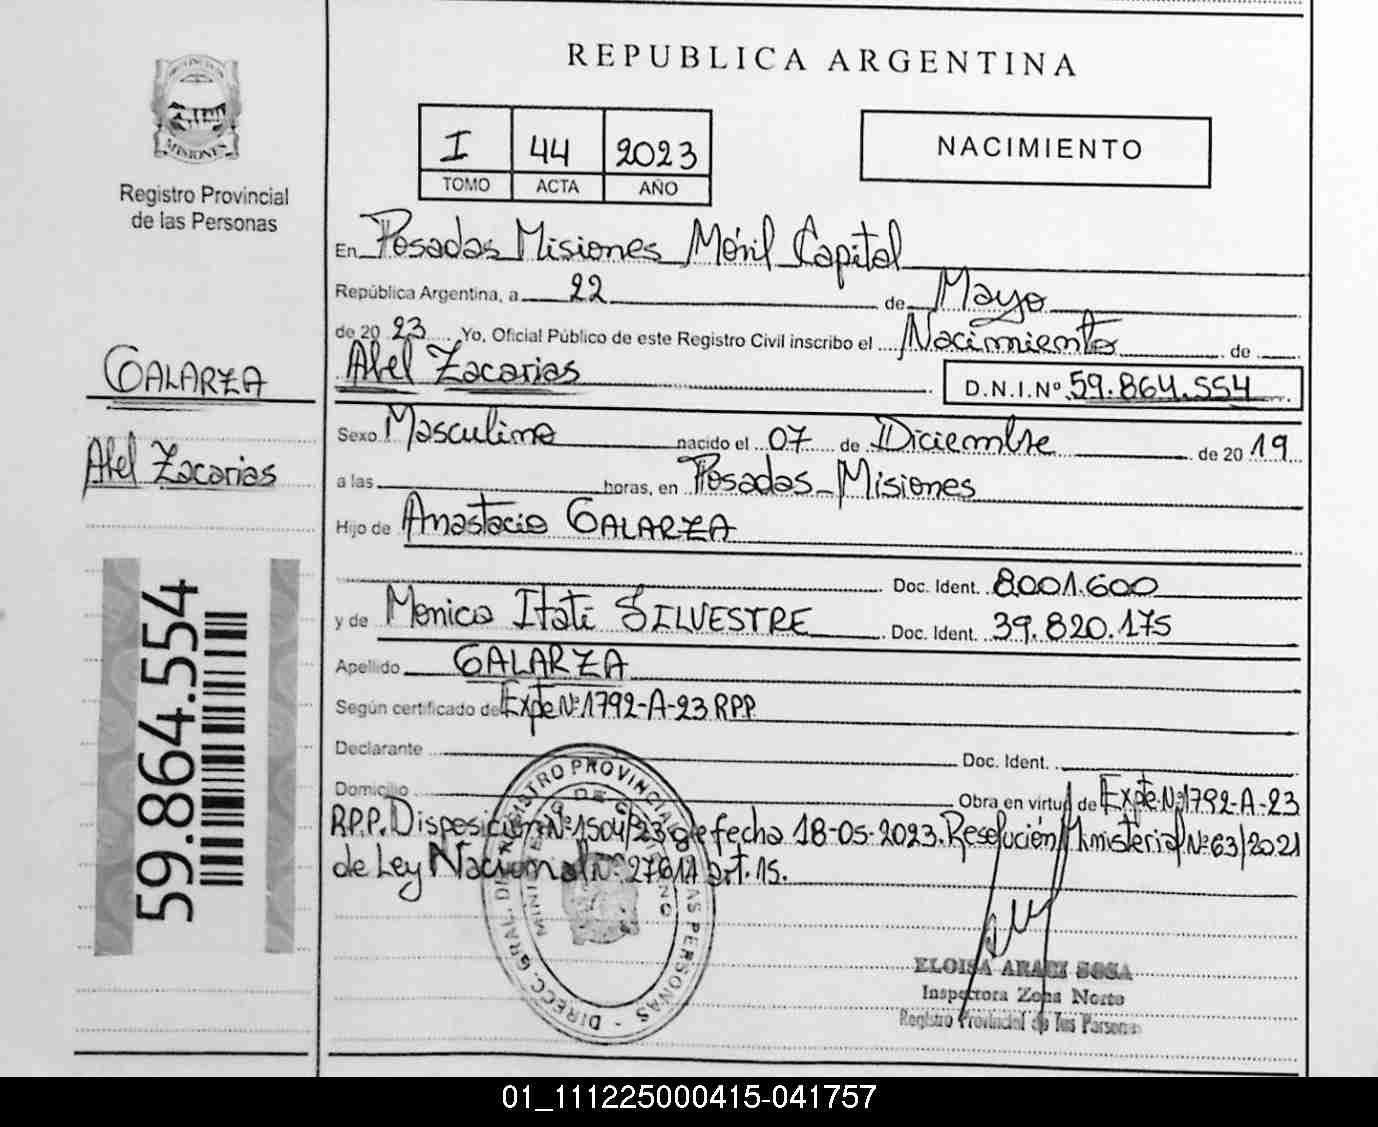 REPUBLICA ARGENTINA
PROVINCIA
MISIONES
Registro Provincial
de las Personas
I 44 2023
TOMO ACTA AÑO
NACIMIENTO
En Posadas Misiones Móvil Capital
República Argentina, a 22 de Mayo
de 20 23 Yo, Oficial Público de este Registro Civil inscribo el Nacimiento de
Abel Zacarias D.N.I.Nº 59.864.554
GALARZA
Abel Zacarias
59.864.554
Sexo Masculino nacido el 07 de Diciembre de 20 19
a las horas, en Posadas - Misiones
Hijo de Anastacio GALARZA
Doc. Ident. 8.001.600
y de Monica Itati SILVESTRE Doc. Ident. 39.820.175
Apellido GALARZA
Según certificado de Expte Nº 1792-A-23 RPP
Declarante Doc. Ident.
Domicilio Obra en virtud de Expte. Nº 1792-A-23
R.P.P. Disposición Nº 1504/23 de fecha 18-05-2023. Resolución Ministerial Nº 63/2021
de Ley Nacional Nº 27611 art. 15.
DIRECC. GRAL. DEL REGISTRO PROVINCIAL DE LAS PERSONAS
ELOISA ARACI SOSA
Inspectora Zona Norte
Registro Provincial de las Personas
01_111225000415-041757